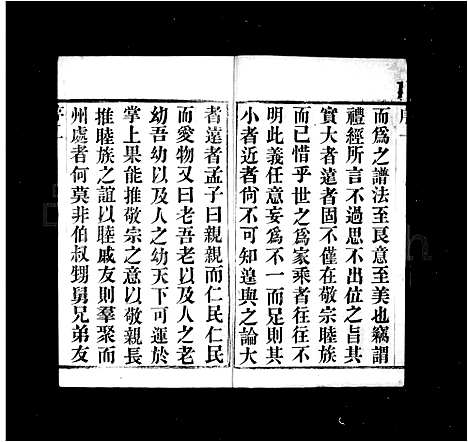 而爲之譜法至良意至美也竊謂
禮經所言不過思不出位之旨其
實大者遠者固不僅在敬宗睦族
而已惜乎世之爲家乘者往往不
明此義任意妄爲不一而足則其
小者近者尙不可知遑與之論大
者遠者孟子曰親親而仁民仁民
而愛物又曰老吾老以及人之老
幼吾幼以及人之幼天下可運於
掌上果能推敬宗之意以敬親長
推睦族之誼以睦戚友則羣聚而
州處者何莫非伯叔甥舅兄弟友